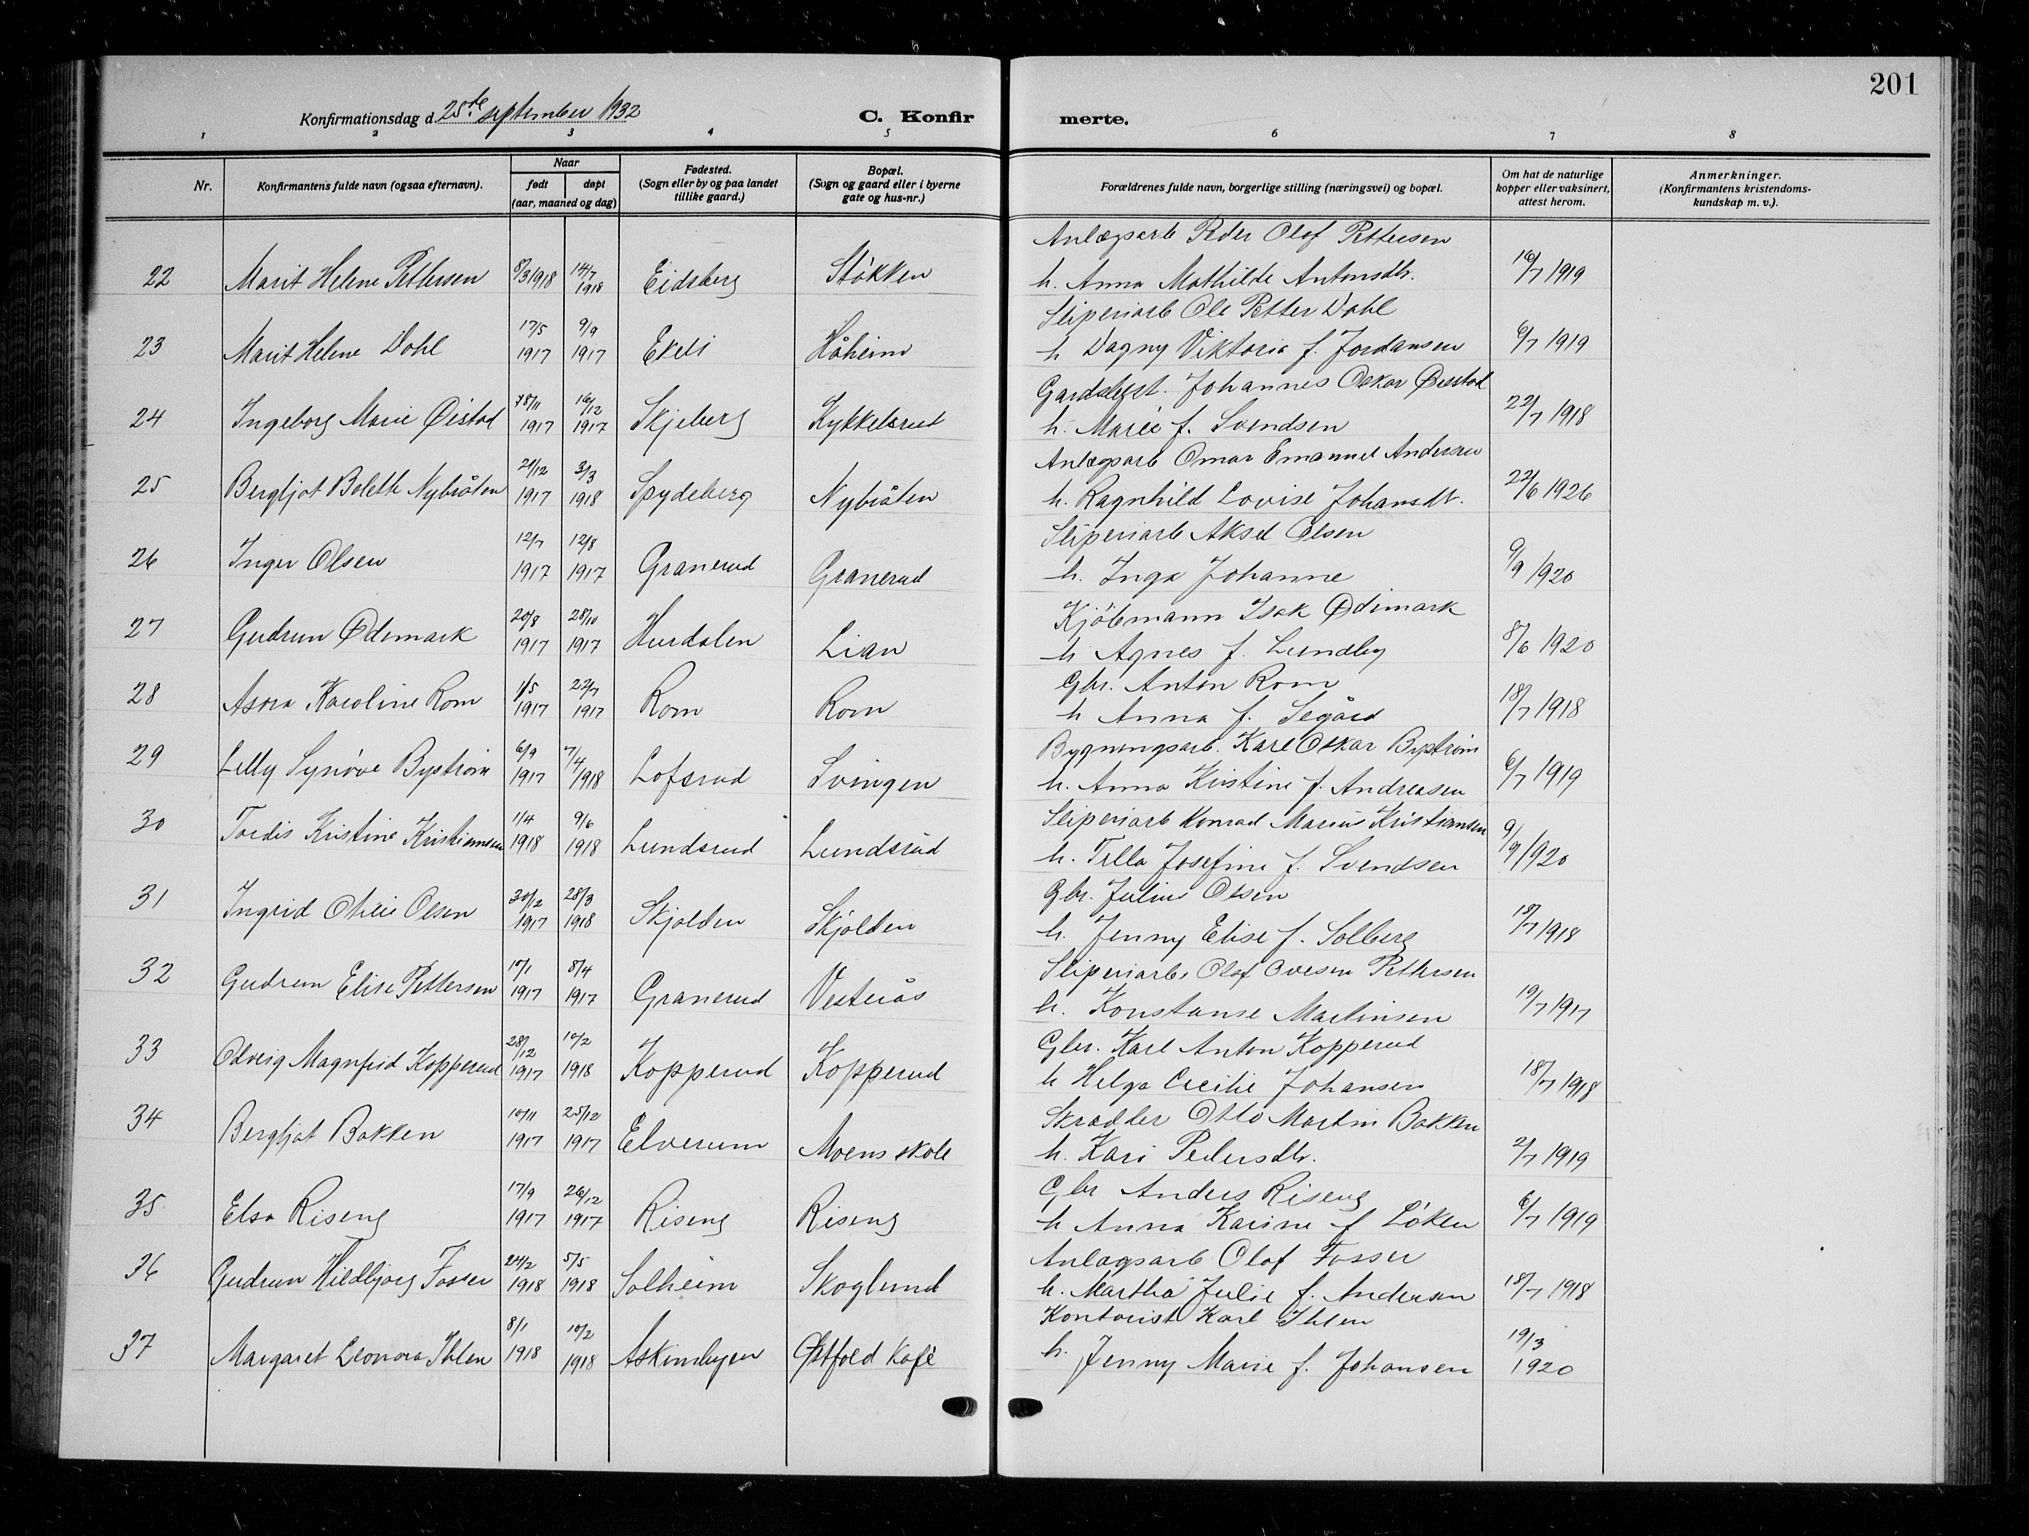 201
Konfirmationsdag d. 25de september 1932 C. Konfirmerte.
1 2 3 4 5 6 7 8
Nr. Konfirmantens fulde navn (ogsaa efternavn). Naar født døpt (aar, maaned og dag) Fødested. (Sogn eller by og paa landet tillike gaard.) Bopæl. (Sogn og gaard eller i byerne gate og hus-nr.) Forældrenes fulde navn, borgerlige stilling (næringsvei) og bopæl. Om hat de naturlige kopper eller vaksinert, attest herom. Anmerkninger. (Konfirmantens kristendomskundskap m. v.).
Anlægsarb Peder Olof Pettersen
22 Marit Helene Pettersen 8/3 1918 14/7 1918 Eidsberg Støkken h. Anna Mathilde Antonsdtr. 16/7 1919
Sliperiarb Ole Petter Dahl
23 Marit Helene Dahl 17/5 1917 9/9 1917 Ekeli Håheim h Dagny Viktoria f. Jordansen 6/7 1919
Gardsbest. Johannes Oskar Øistad
24 Ingeborg Marie Øistad 18/11 1917 16/12 1917 Skjeberg Kykkelsrud h. Marie f. Svendsen 22/7 1918
Anlægsarb Omar Emanuel Andersen
25 Bergljot Boleth Nybråten 21/12 1917 3/3 1918 Spydeberg Nybråten h. Ragnhild Lovise Johansdt. 22/6 1926
Sliperiarb Aksel Olsen
26 Inger Olsen 12/7 1917 12/8 1917 Granerud Granerud h. Inga Johanne 9/9 1920
Kjöbmann Isak Ødemark
27 Gudrun Ødemark 20/8 1917 28/10 1917 Hurdalen Lian h Agnes f. Lundby 8/6 1920
Gbr. Anton Rom
28 Asora Karoline Rom 1/5 1917 22/7 1917 Rom Rom h Anna f. Segård 18/7 1918
Bygningsarb. Karl Oskar Byström
29 Lilly Synöve Byström 6/9 1917 7/4 1918 Lofsrud Svingen h. Anna Kristine f. Andreasen 6/7 1919
Sliperiarb Konrad Marius Kristiansen
30 Tordis Kristine Kristiansen 1/4 1918 9/6 1918 Lundsrud Lundsrud h. Tilla Josefine f. Svendsen 9/9 1920
Gbr. Julius Olsen
31 Ingrid Otilie Olsen 30/12 1917 28/3 1918 Skjolden Skjolden h. Jenny Elise f. Solberg 18/7 1918
Sliperiarb. Olof Ovesen Pettersen
32 Gudrun Elise Pettersen 10/1 1917 8/4 1917 Granerud Vesterås h. Konstanse Martinsen 19/7 1917
Gbr. Karl Anton Kopperud
33 Odveig Magnfrid Kopperud 28/12 1917 10/2 1918 Kopperud Kopperud h Helga Cecilie Johansen 18/7 1918
Skrædder Otto Martin Bakken
34 Bergljot Bakken 10/11 1917 25/12 1917 Elverum Moens skole h. Kari Pedersdtr. 2/7 1919
Gbr Anders Riseng
35 Elsa Riseng 17/9 1917 26/12 1917 Riseng Riseng h Anna Karine f Løken 6/7 1919
Anlægsarb Olof Fosser
36 Gudrun Hildbjørg Fosser 24/2 1918 5/5 1918 Solheim Skoglund h. Martha Julie f. Andersen 18/7 1918
Kontorist Karl Ihlen
37 Margaret Leonora Ihlen 8/1 1918 10/2 1918 Askimbyen Østfold Kafè h. Jenny Marie f. Johansen 19/3 1920